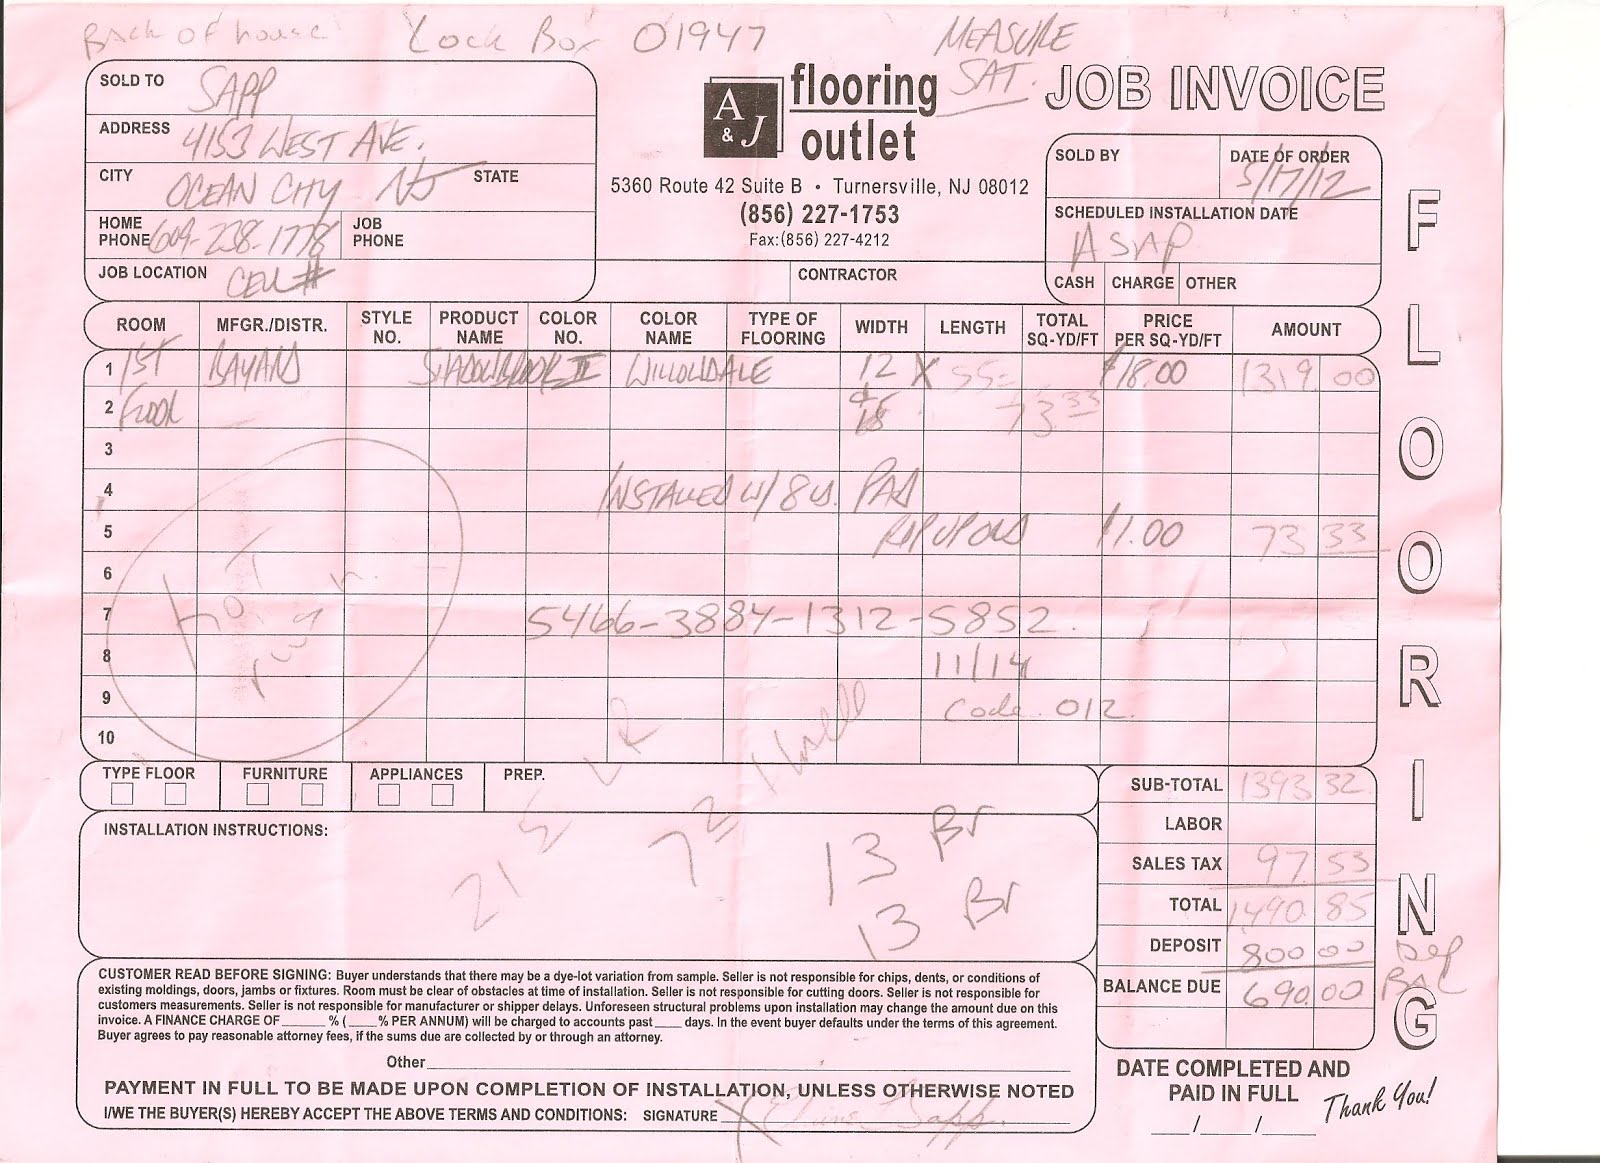 Back of house Lock Box 01947 MEASURE SAT.
SOLD TO SAPP
ADDRESS 4153 WEST AVE.
CITY OCEAN CITY NJ STATE
HOME PHONE 609-238-1778 JOB PHONE
JOB LOCATION CELL #
A & J flooring outlet
5360 Route 42 Suite B • Turnersville, NJ 08012
(856) 227-1753
Fax:(856) 227-4212
CONTRACTOR
JOB INVOICE
SOLD BY DATE OF ORDER 5/17/12
SCHEDULED INSTALLATION DATE
ASAP
CASH CHARGE OTHER
FLOORING
ROOM MFGR./DISTR. STYLE NO. PRODUCT NAME COLOR NO. COLOR NAME TYPE OF FLOORING WIDTH LENGTH TOTAL SQ-YD/FT PRICE PER SQ-YD/FT AMOUNT
1 1ST SHADOWBROOK II WILLOWDALE 12 X 55 $18.00 1319 00
2 FLOOR 73.33
3
4 INSTALLED W/ 8 LB. PAD
5 RIP UP OLD $1.00 73 33
6
7 5466-3884-1312-5852
8 11/14
9 Code 012
10
TYPE FLOOR FURNITURE APPLIANCES PREP.
INSTALLATION INSTRUCTIONS:
21 LR
7
13 Br
13 Br
SUB-TOTAL 1393 32
LABOR
SALES TAX 97 53
TOTAL 1490 85
DEPOSIT 800 00 Dep
BALANCE DUE 690.00 BAL
CUSTOMER READ BEFORE SIGNING: Buyer understands that there may be a dye-lot variation from sample. Seller is not responsible for chips, dents, or conditions of
existing moldings, doors, jambs or fixtures. Room must be clear of obstacles at time of installation. Seller is not responsible for cutting doors. Seller is not responsible for
customers measurements. Seller is not responsible for manufacturer or shipper delays. Unforeseen structural problems upon installation may change the amount due on this
invoice. A FINANCE CHARGE OF ______ % ( ____% PER ANNUM) will be charged to accounts past ____ days. In the event buyer defaults under the terms of this agreement.
Buyer agrees to pay reasonable attorney fees, if the sums due are collected by or through an attorney.
Other
PAYMENT IN FULL TO BE MADE UPON COMPLETION OF INSTALLATION, UNLESS OTHERWISE NOTED
I/WE THE BUYER(S) HEREBY ACCEPT THE ABOVE TERMS AND CONDITIONS: SIGNATURE X Sapp
DATE COMPLETED AND
PAID IN FULL
___/___/___
Thank You!